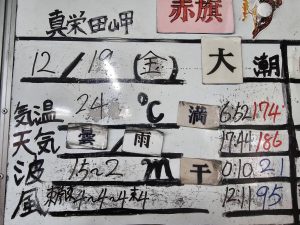 真栄田岬 赤旗
12/19 (金) 大潮
気温 24℃ 満 6:52 174
天気 曇/雨 17:44 186
波 1.5~2m 干 0:10 21
風 4~4~ 4 12:11 95